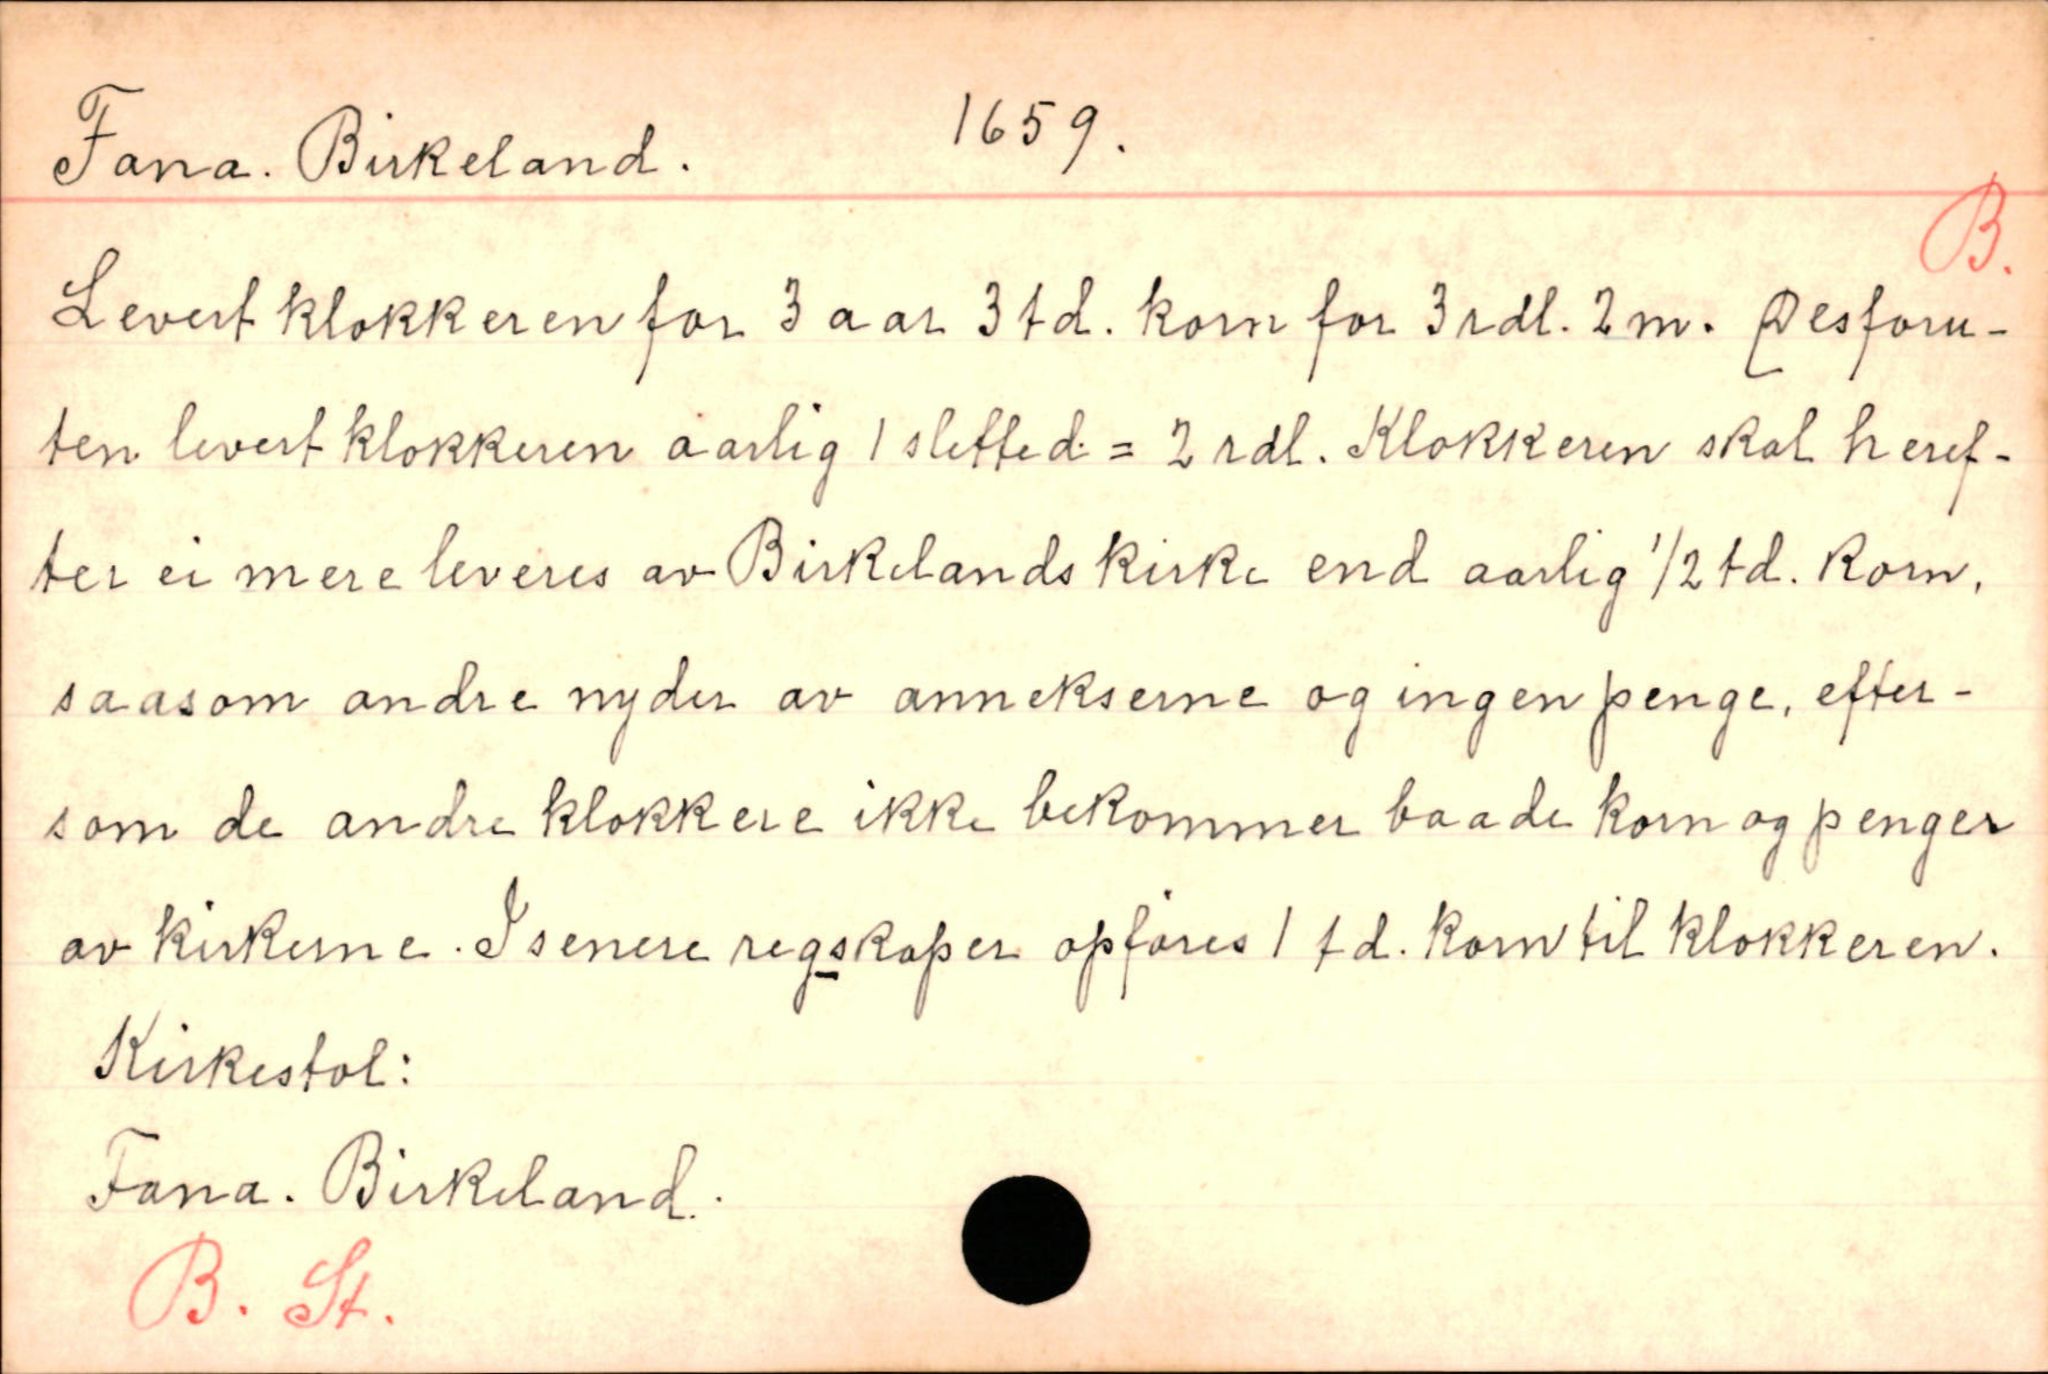 Fana. Birkeland. 1659.
B.
Levert klokkeren for 3 aar 3 td. korn for 3 rdl. 2 m. Desforu-
ten levert klokkeren aarlig 1 sletted. = 2 rdl. Klokkeren skal heref-
ter ei mere leveres av Birkelands kirke end aarlig 1/2 td. korn,
saasom andre nyder av annekserne og ingen penge, efter-
som de andre klokkere ikke bekommer baade korn og penger
av kirkerne. I senere regskaper opføres 1 td. korn til klokkeren.
Kirkestol:
Fana. Birkeland.
B. St.